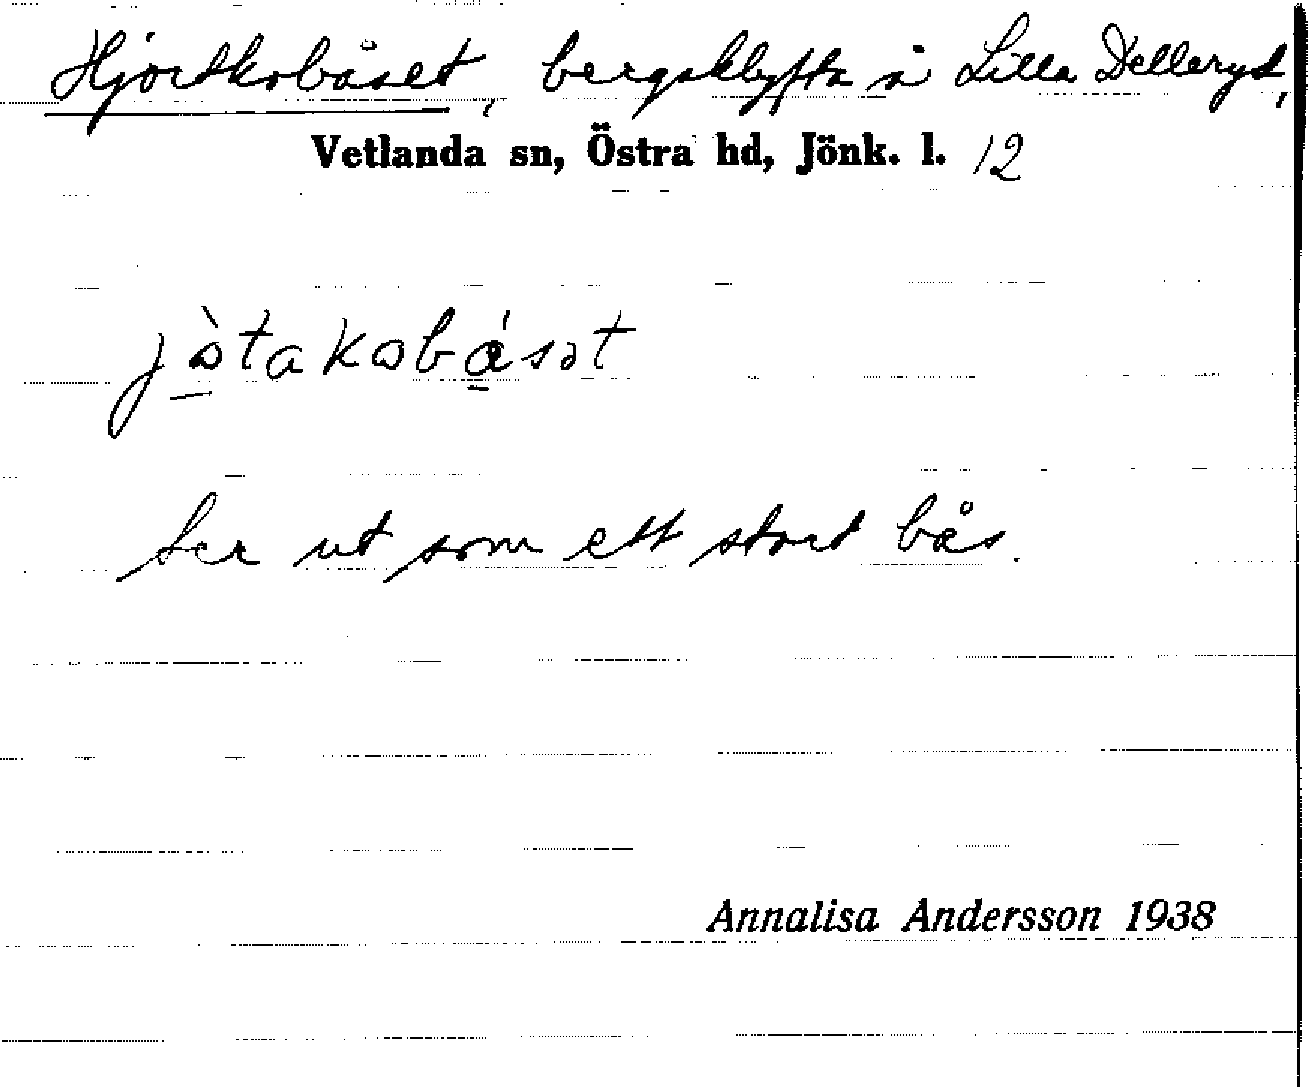 Hjortkobåset, bergsklyfta å Lilla Delleryd,
Vetlanda sn, Östra hd, Jönk. l. 12
jòtakobásət
Ser ut som ett stort bås.
Annalisa Andersson 1938